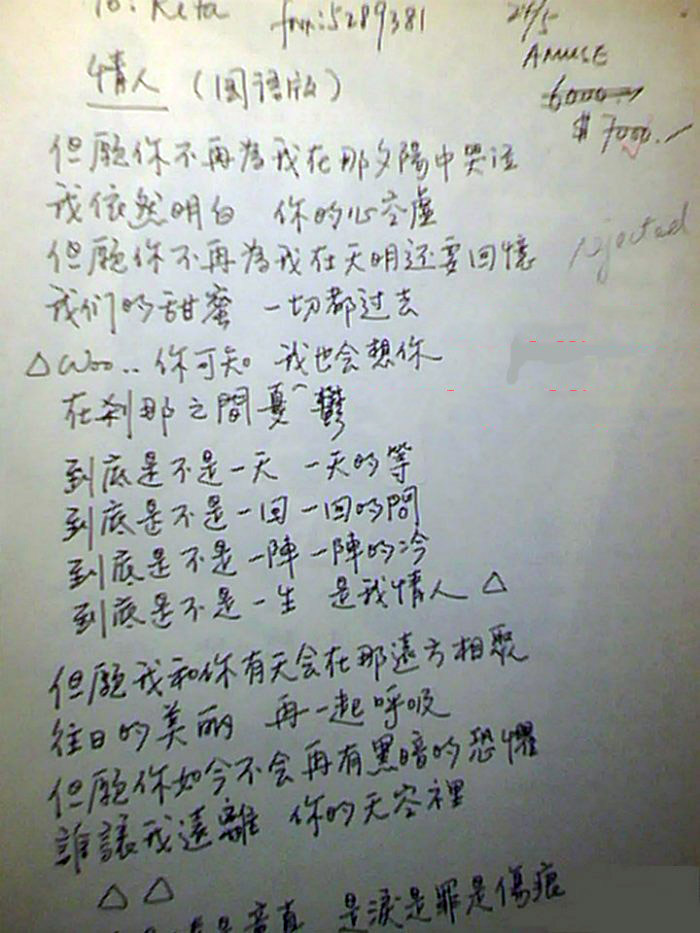 To: Keta
fax: 5289381
24/5
AMUSE
6000
$7000.
情人 (国语版)
但願你不再為我在那夕陽中哭泣
我依然明白 你的心空虛
rejected
但願你不再為我在天明还要回憶
我们的甜蜜 一切都过去
△ Woo.. 你可知 我也会想你
在刹那之間憂鬱
到底是不是一天 一天的等
到底是不是一回 一回的問
到底是不是一陣 一陣的冷
到底是不是一生 是我情人 △
但願我和你有天会在那遠方相聚
往日的美丽 再一起呼吸
但願你如今不会再有黑暗的恐懼
誰讓我遠離 你的天空裡
△ △
是淚是罪是傷痕